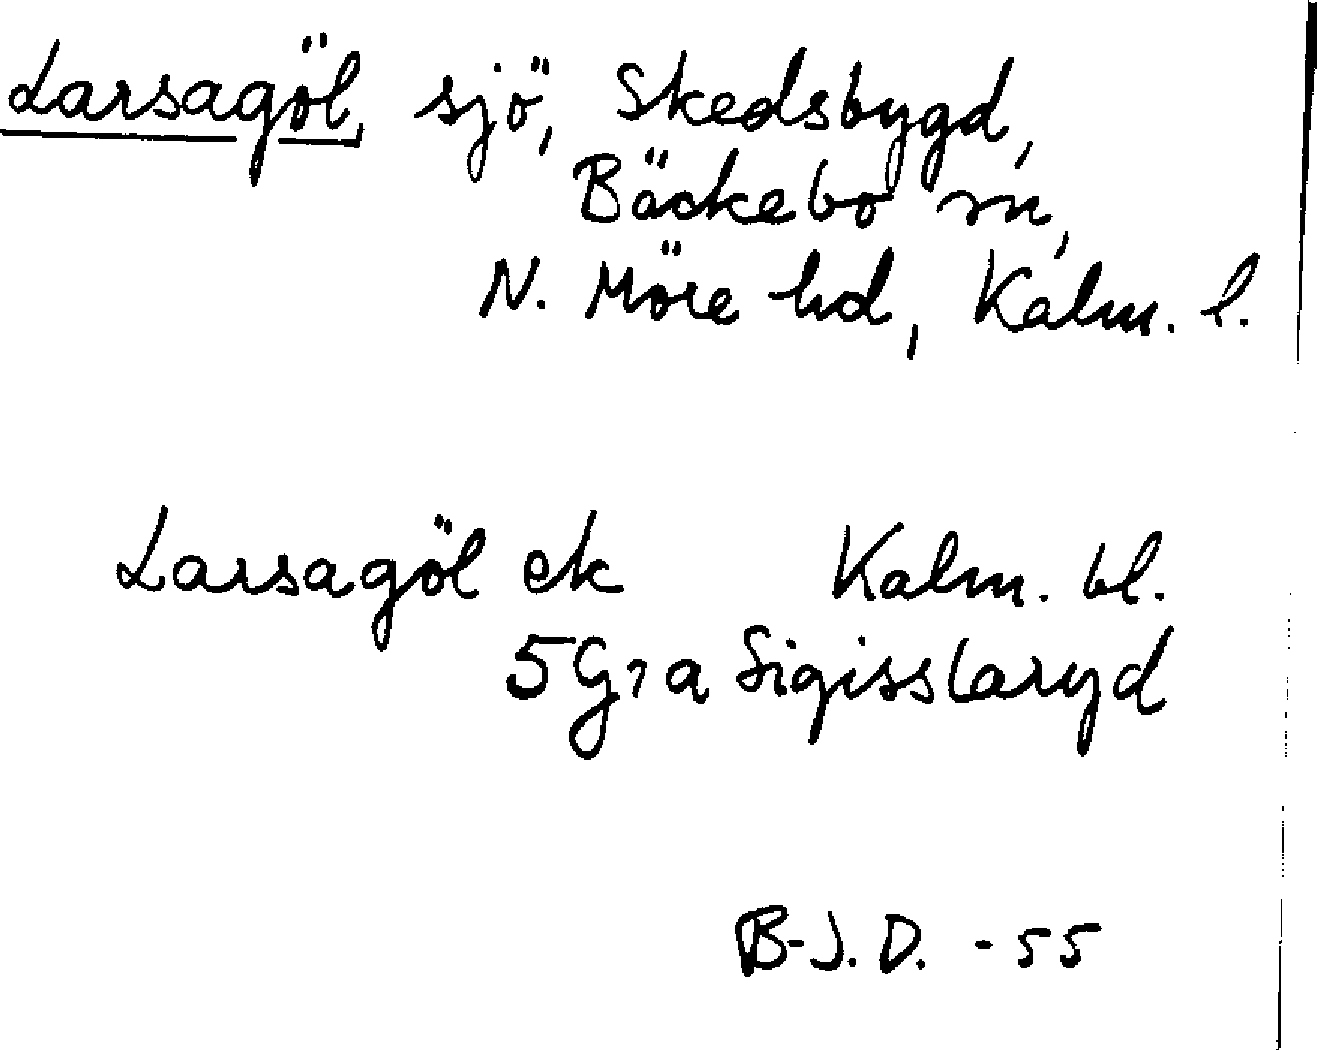 Larsagöl, sjö, Skedsbygd,
Bäckebo sn,
N. Möre hd, Kalm. l.
Larsagöl ek Kalm. bl.
5G7a Sigisslaryd
B-J.D. -55